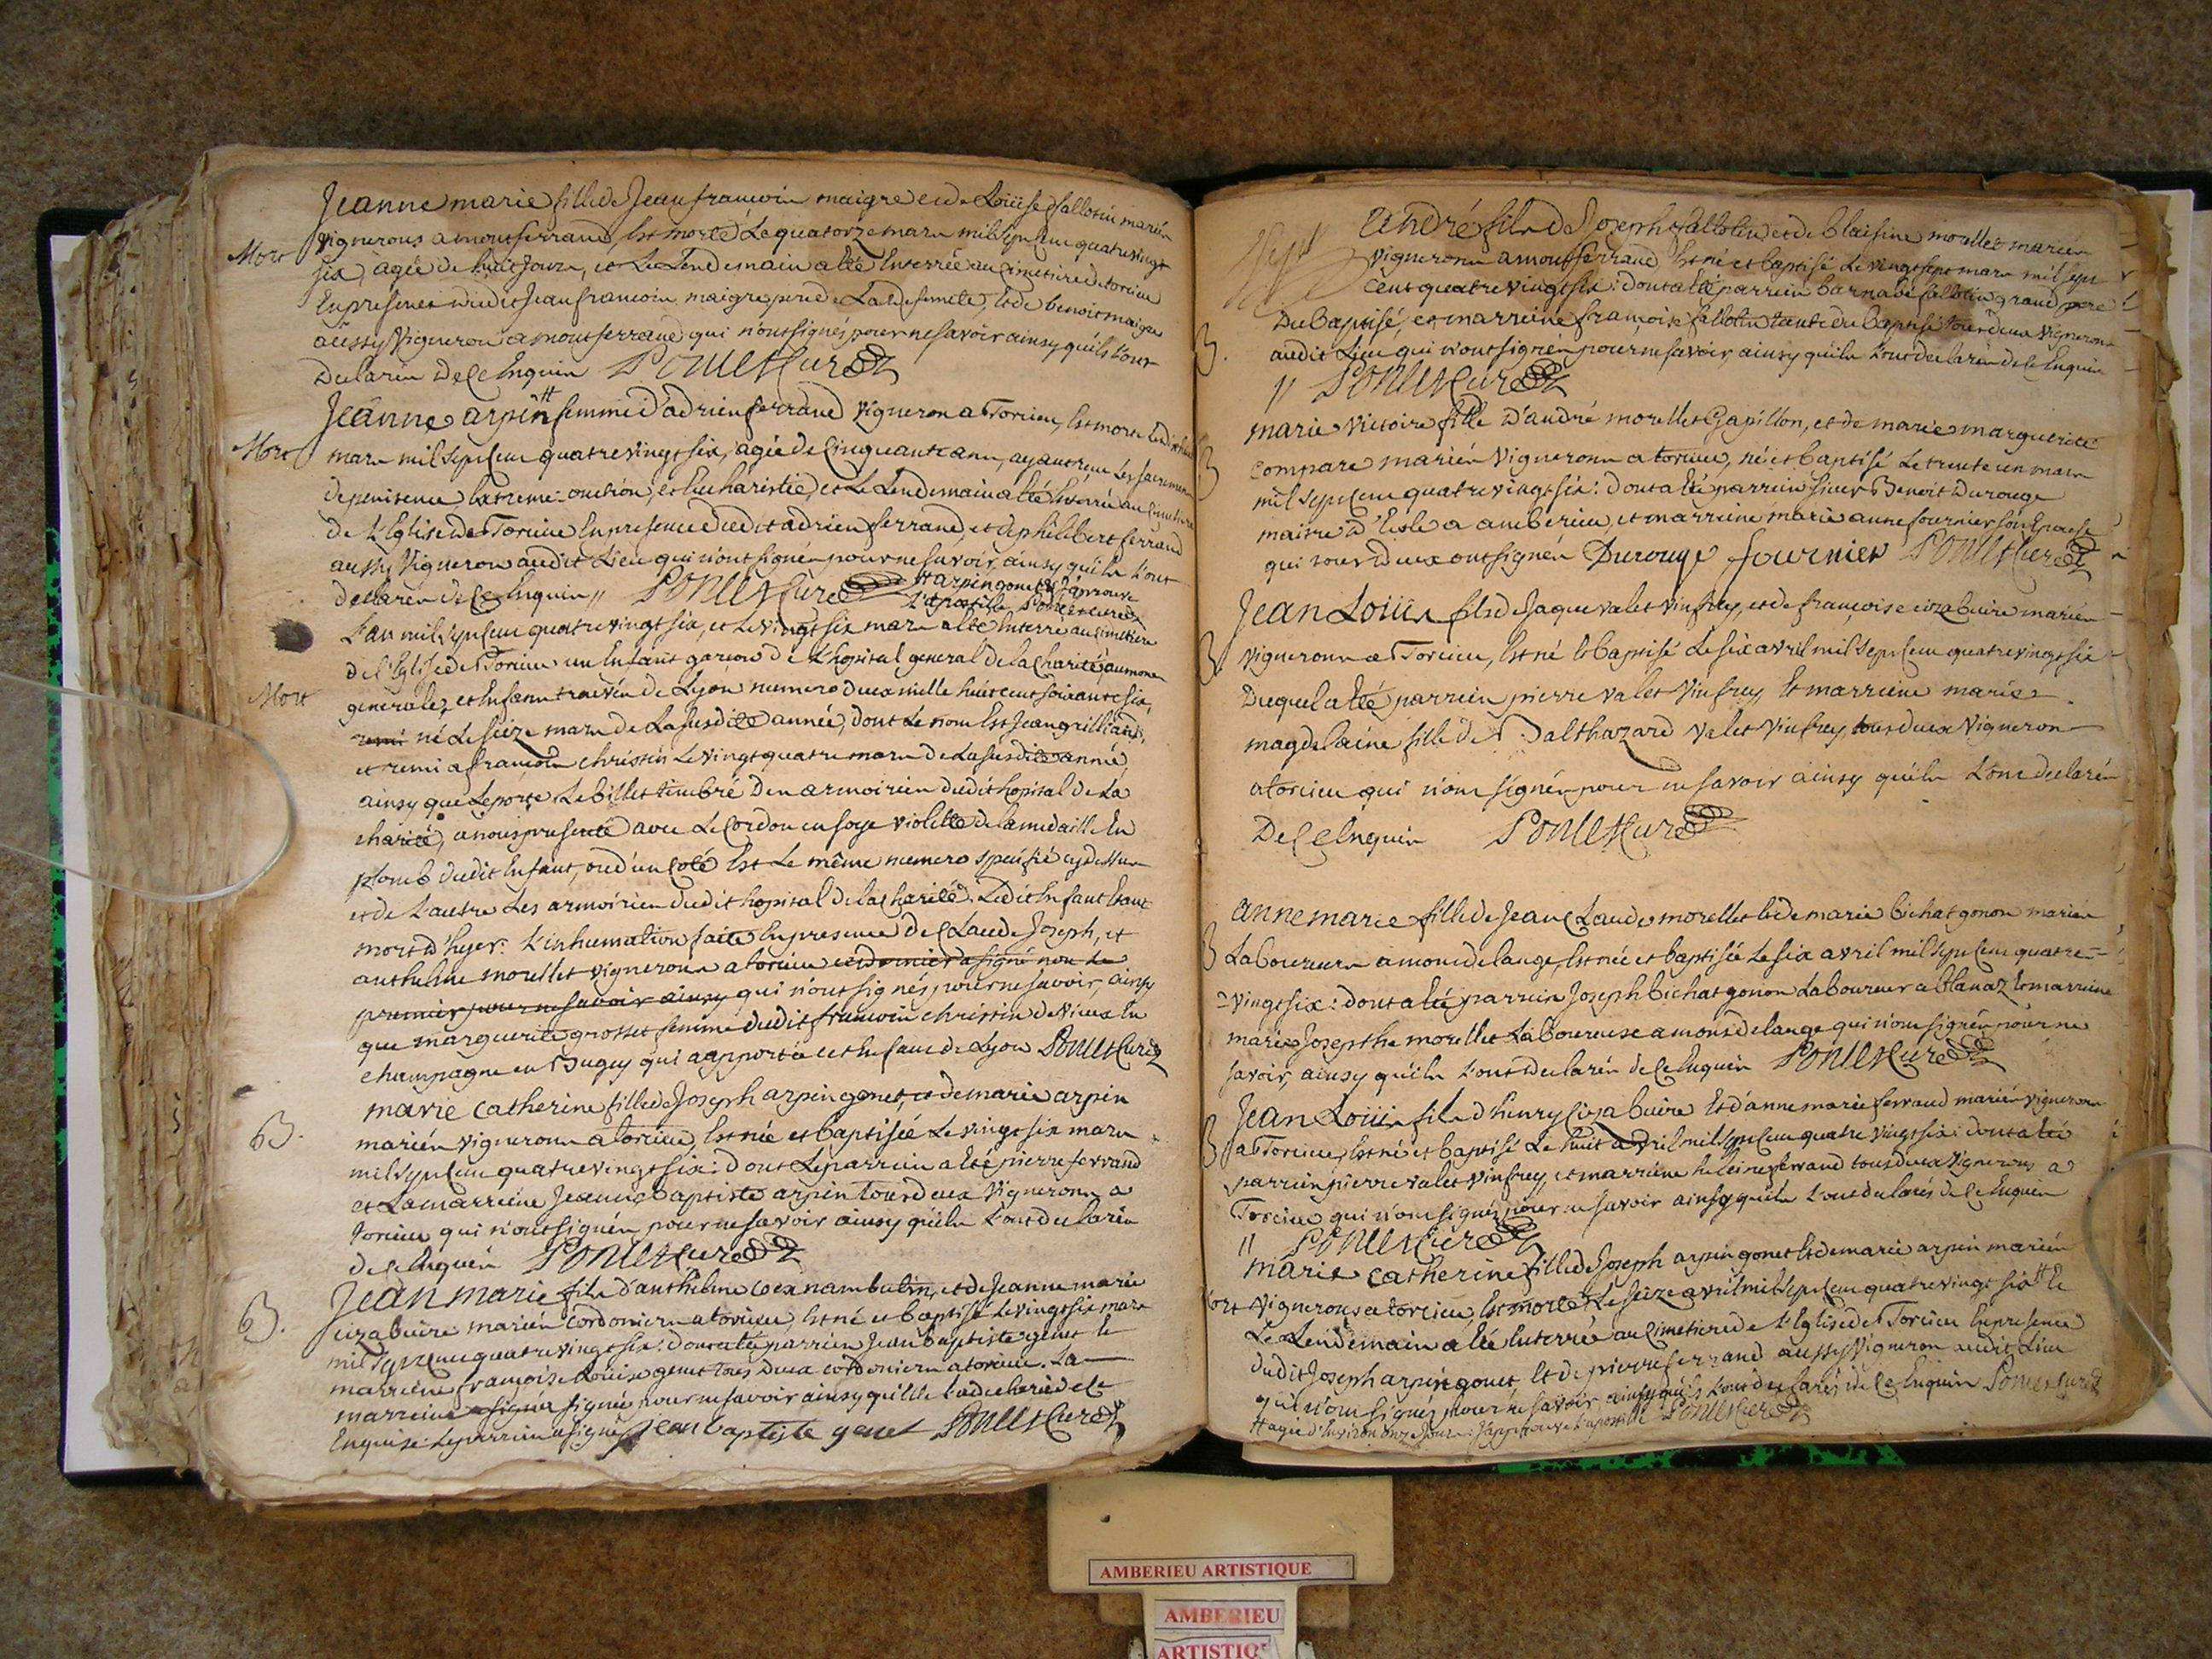 Jeanne marie fille de Jean francois maigre et de Loüise fallotin mariés
Mort
vignerons a montferrand, Est morte Le quatorze mars mil sept Cent quatre vingt
six, agée de huit Jours, et Le Lendemain a Eté Enterrée au Cimetiere de torcieu
En presence dudit Jean francois maigre pere de La defunte, Et de benoit maigre
aüssy Vigneron a montferrand qui n'ont signés pour ne savoir ainsy qu'ils L'ont
declarés de Ce Enquis PONCET Curé
Jeanne arpin # femme d'adrien ferrand vigneron a Torcieu, Est morte Le
Mort
mars mil sept Cent quatre vingt six, agée de Cinquante ans, ayant reçu Les sacremens
de penitence Extreme-onction, et Eucharistie, et Le Lendemain a Eté Enterrée au Cimetiere
de L'Eglise de Torcieu En presence dudit adrien ferrand, et de philibert ferrand
aussy Vigneron audit Lieu qui n'ont signés pour ne savoir, ainsy qu'ils L'ont
declarés de Ce Enquis,, PONCET Curé # arpin gonet J'aprouve
L'apostille Poncet curé
L'an mil sept Cent quatre vingt six, et Le vingt six mars a Eté Enterré au Cimetiere
de L'Eglise de Torcieu un Enfant garçon de L'hopital general de la Charité, aumone
Mort
generale, et Enfans trouvés de Lyon numero deux mille huit cent soixante six,
né Le seize mars de La susdite année, dont Le nom Est Jean grilliand,
et remi a francois christin Le vingt quatre mars de La susdite année,
ainsy que Le porte Le billet timbré des armoiries dudit hopital de La
charité, a nous presenté avec Le Cordon en soye violette de la medaille En
plomb dudit Enfant, ou d'un Coté Est Le même numero specifié cy dessus
et de L'autre Les armoiries dudit hopital de la Charité. Ledit Enfant Etant
mort d'hyer. L'inhumation faite En presence de Claude Joseph, et
anthelme morellet vignerons a torcieu ce dernier a signé non Le
premier pour ne savoir ainsy qui n'ont signés, pour ne savoir, ainsy
que marguerite grosset femme dudit francois christin de Vieux En
champagne en Bugey qui a apporté cet Enfant de Lyon PONCET Curé
marie catherine fille de Joseph arpin gonet, et de marie arpin
B.
mariés vignerons a torcieu, Est née et baptisée Le vingt six mars
mil sept Cent quatre vingt six: dont Le parrein a Eté pierre ferrand
et La marreine Jeanne baptiste arpin tous deux Vignerons a
torcieu qui n'ont signés pour ne savoir ainsy qu'ils L'ont declarés
de Ce Enquis PONCET Curé
Jean marie fils d'anthelme et de Jeanne marie
B.
cizabuire mariés Cordoniers a torcieu, Est né et baptisé Le vingt six mars
mil sept Cent quatre vingt six: dont a Eté parrein Jean baptiste genet Et
marreine françoise Loüise genet tous deux Cordoniers a torcieu. La
marreine signé pour ne savoir ainsy qu'elle L'a declaré de Ce
Enquise. Le parrein a signé Jean baptiste genet PONCET Curé
André fils de Joseph fallotin et de blaisine morellet mariés
vignerons a montferrand Est né et baptisé Le vingt sept mars mil sept
cent quatre vingt six: dont a Eté parrein barnabé fallotin grand pere
du baptisé, et marreine françoise fallotin tante du baptisé tous deux vignerons
B.
audit Lieu qui n'ont signés pour ne savoir, ainsy qu'ils L'ont declarés de Ce Enquis
,, PONCET Curé
marie Victoire fille D'andré morellet Gapillon, et de marie marguerite
B
compare mariés Vignerons a torcieu, né et baptisé Le trente un mars
mil sept Cent quatre vingt six: dont a Eté parrein sieur Benoit Durouge
maitre d'Ecole a amberieu, et marreine marie anne fournier son Epouse
qui tous deux ont signés Durouge fournier PONCET Curé
Jean Loüis fils de Jaque valet vinfrey, et de françoise cizabuire mariés
B
vignerons a Torcieu, Est né Et baptisé Le six avril mil sept Cent quatre vingt six
Duquel a Eté parrein pierre valet vinfrey Et marreine marie
magdelaine fille de Balthazard valet vinfrey, tous deux Vignerons
a torcieu qui n'ont signés pour ne savoir ainsy qu'ils L'ont declarés
De Ce Enquis PONCET Curé
anne marie fille de Jean Claude morellet Et de marie bichat gonon mariés
B
Laboureurs a mont de lange, Est née et baptisée Le six avril mil sept Cent quatre
vingt six: dont a Eté parrein Joseph bichat gonon Laboureur a blanaz Et marreine
marie Josepthe morellet Laboureuse a mont de lange qui n'ont signés pour ne
savoir, ainsy qu'ils L'ont declarés de Ce Enquis PONCET Curé
Jean Loüis fils d'henry Cizabuire Et d'anne marie ferrand mariés vignerons
B
a Torcieu, Est né et baptisé Le huit avril mil sept Cent quatre vingt six: dont a Eté
parrein pierre valet vinfrey, et marreine heleine ferrand tous deux Vignerons a
Torcieu qui n'ont signés pour ne savoir ainsy qu'ils L'ont declarés de Ce Enquis
,, PONCET Curé
marie catherine fille de Joseph arpin gonet Et de marie arpin mariés
Mort
vignerons a torcieu Est morte Le seize avril mil sept Cent quatre vingt six # Et
Le Lendemain a Eté Enterrée au Cimetiere de L'Eglise de Torcieu En presence
dudit Joseph arpin gonet Et de pierre ferrand aüssy Vigneron audit Lieu
qui n'ont signés pour ne savoir ainsy qu'ils L'ont declarés de Ce Enquis Poncet Curé
# agée d'Environ onze Jours: J'approuve L'apostille PONCET Curé
AMBERIEU ARTISTIQUE
AMBERIEU
ARTISTIQ